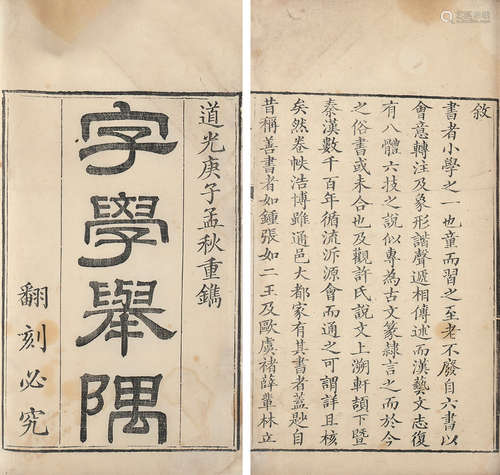 道光庚子孟秋重鐫
字學舉隅
翻刻必究
敘
書者小學之一也童而習之至老不廢自六書以
會意轉注及象形諧聲遞相傳述而漢藝文志復
有八體六技之說似專為古文篆隸言之而於今
之俗書或未合也及觀許氏說文上溯軒頡下暨
秦漢數千百年循流泝源會而通之可謂詳且核
矣然卷帙浩博雖通邑大都家有其書者葢尠自
昔稱善書者如鍾張如二王及歐虞褚薛輩林立